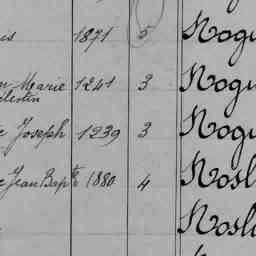 is 1871 5 Nogu
n Marie 1241 3 Nogu
lestin
e Joseph 1239 3 Nogu
e Jean Bapte 1880 4 Nosl
Nosl